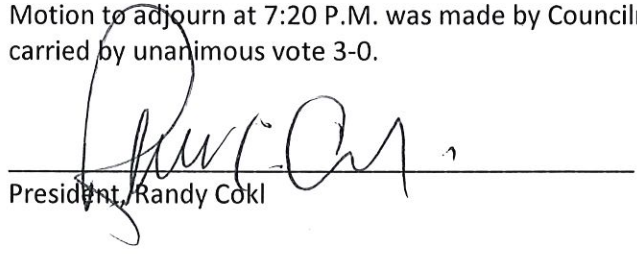 Motion to adjourn at 7:20 P.M. was made by Council
carried by unanimous vote 3-0.
President, Randy Cokl